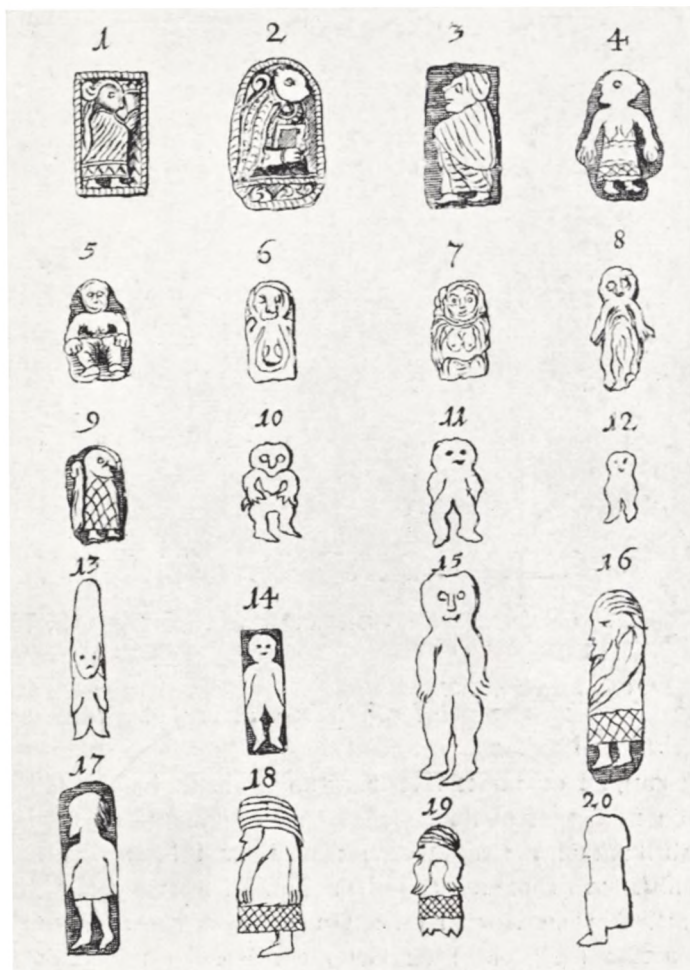 1 2 3 4
5 6 7 8
9 10 11 12
13 14 15 16
17 18 19 20